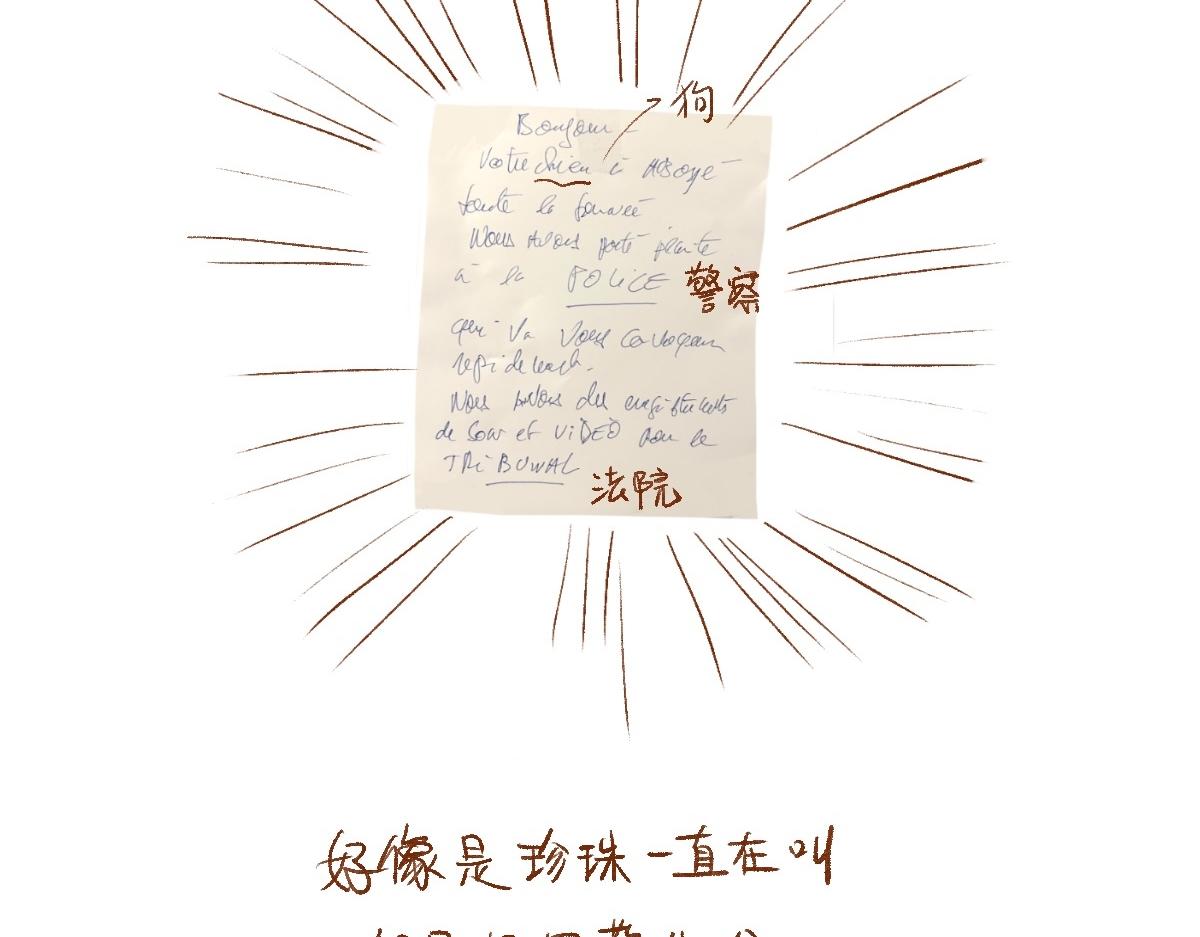 狗
Bonjour -
Votre chien à Aboyé -
toute la journée
Nous avons porté plainte
à la POLICE 警察
qui va vous convoquer
rapidement.
Nous avons des enregistrements
de son et ViDEO pour le
TRiBUNAL
法院
好像是珍珠一直在叫